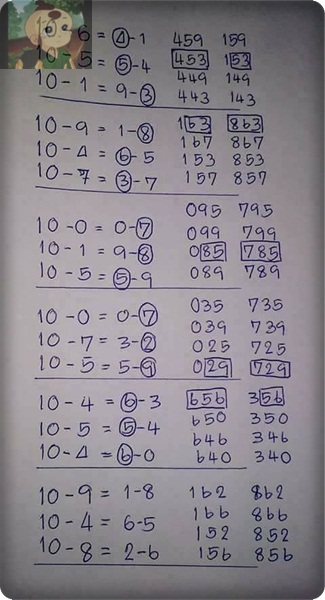 6 = 4-1 459 159
5 = 5-4 453 153
10-1 = 9-3 449 149
443 143
10-9 = 1-8 163 863
10-4 = 6-5 167 867
10-7 = 3-7 153 853
157 857
095 795
10-0 = 0-7 099 799
10-1 = 9-8 085 785
10-5 = 5-9 089 789
10-0 = 0-7 035 735
10-7 = 3-2 039 739
10-5 = 5-9 025 725
029 729
10-4 = 6-3 656 356
10-5 = 5-4 650 350
10-4 = 6-0 646 346
640 340
10-9 = 1-8 162 862
10-4 = 6-5 166 866
10-8 = 2-6 152 852
156 856